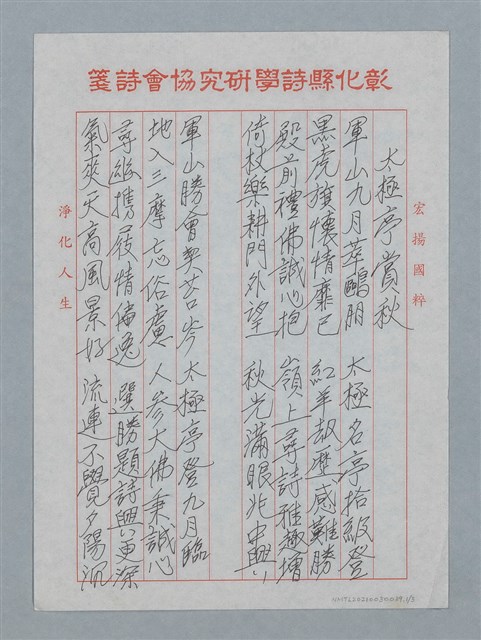 彰化縣詩學研究協會詩箋
宏揚國粹
太極亭賞秋
軍山九月萃鷗朋 太極名亭拾級登
黑虎旗懷情靡已 紅羊劫歷感難勝
殿前禮佛誠心抱 嶺上尋詩雅趣增
倚杖樂耕門外望 秋光滿眼兆中興
軍山勝會契苔岑 太極亭登九月臨
地入三摩忘俗慮 人參大佛秉誠心
尋幽攜屐情偏逸 選勝題詩興更深
氣爽天高風景好 流連不覺夕陽沉
淨化人生